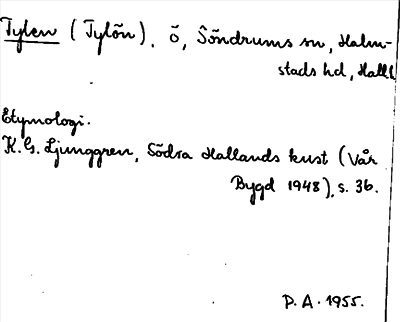 Tylen (Tylön). ö, Söndrums sn, Halm-
stads hd, Hall.
Etymologi.
K.G. Ljunggren, Södra Hallands kust (Vår
Bygd 1948), s. 36.
P. A. 1955.